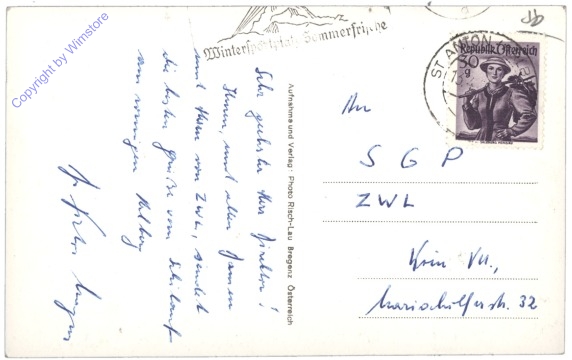 Copyright by Wimstore
Wintersportplatz, Sommerfrische
ST. ANTON
Republik Österreich
30
g
Sehr geehrter Herr Direktor!
Ihnen, und allen Damen
und Herren von ZWL, sendet
die besten Grüße vom Schilauf
am
Aufnahme und Verlag: Photo Risch-Lau Bregenz Österreich
An
S G P
ZWL
Wien VII.,
Mariahilferstr. 32